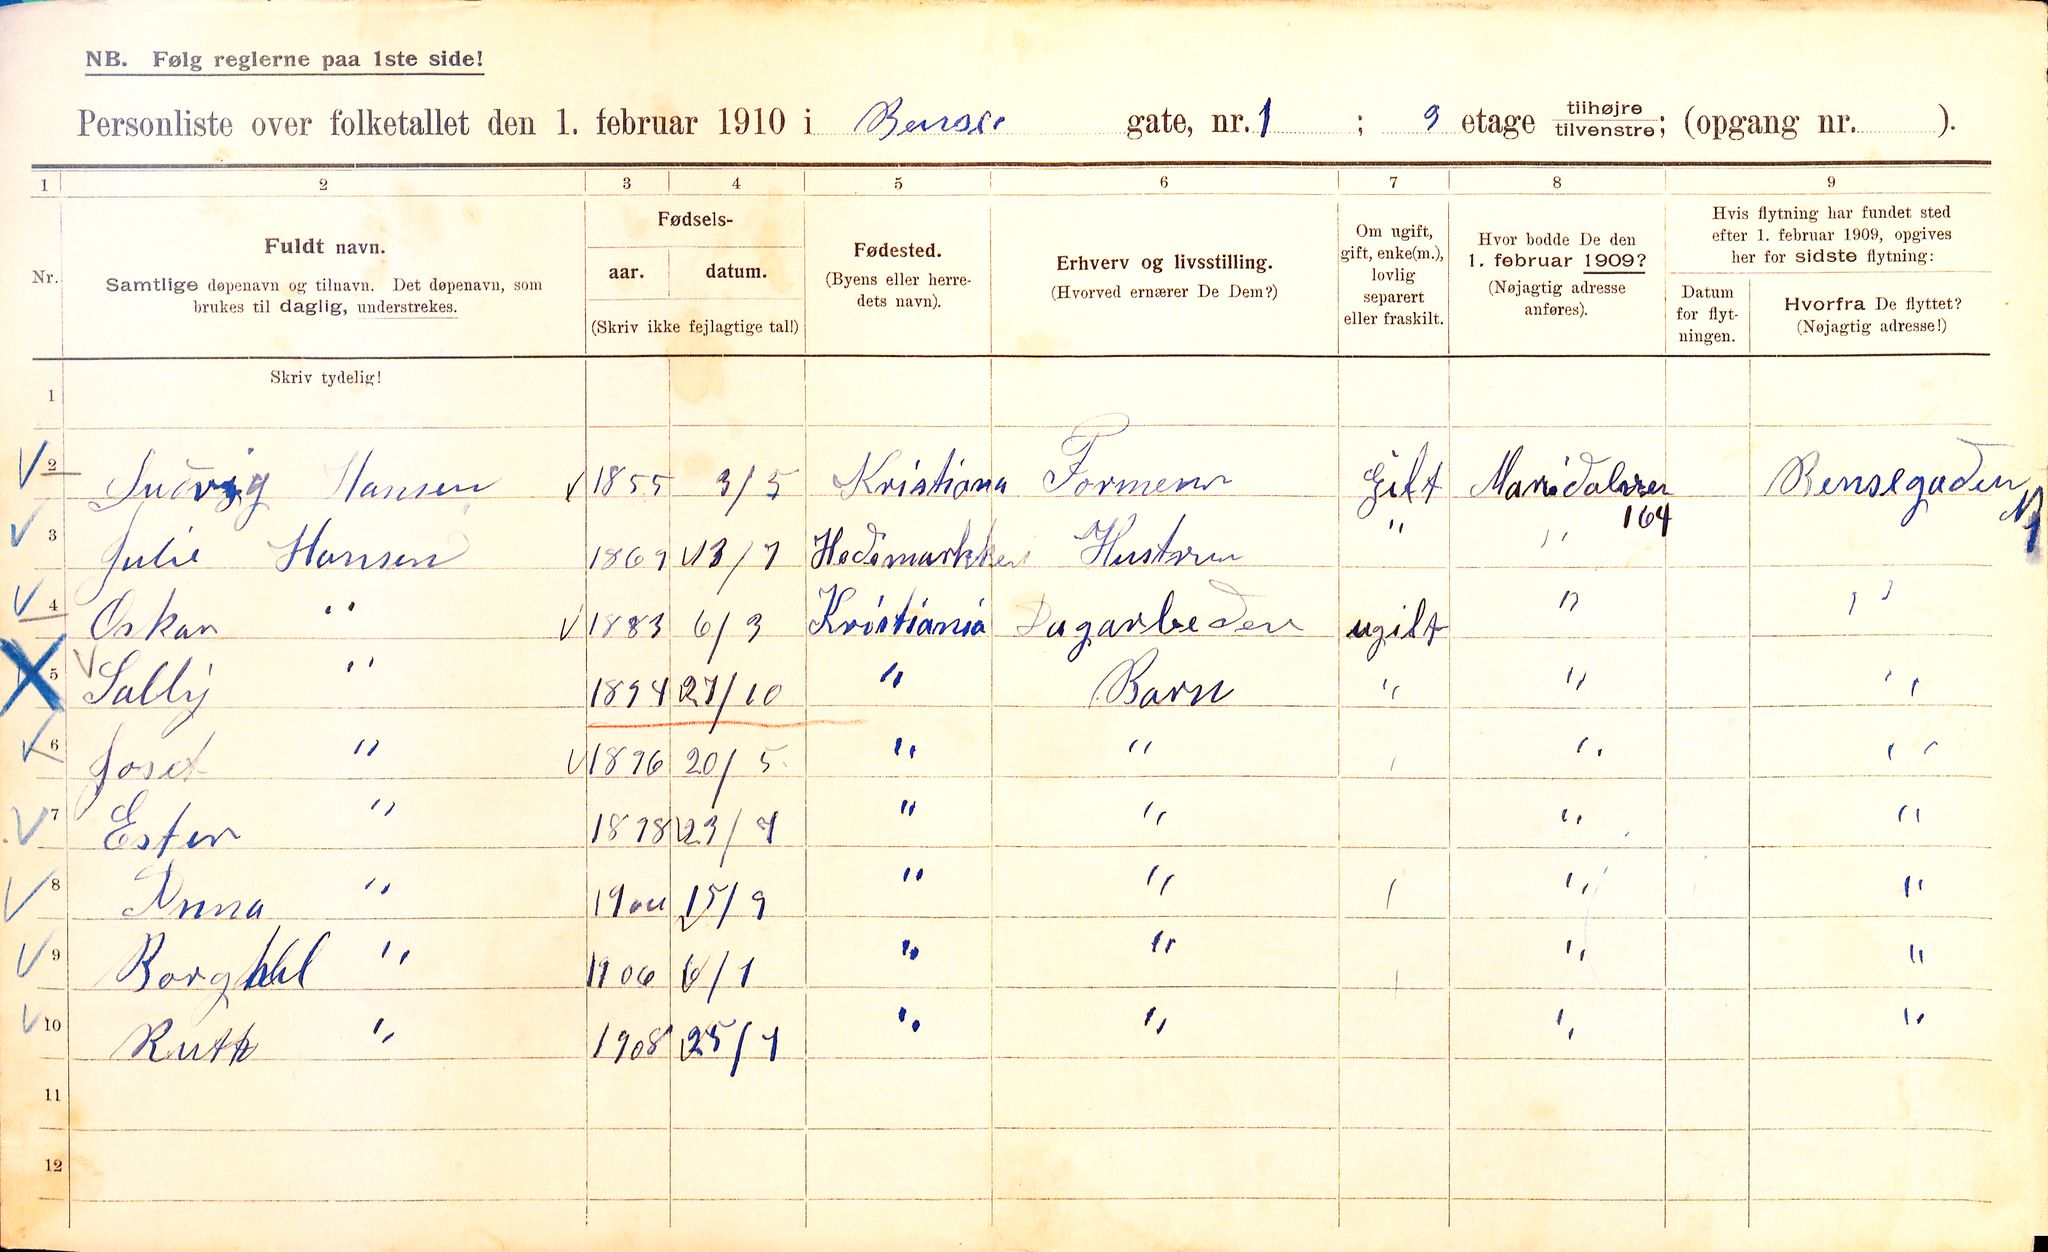 NB. Følg reglerne paa 1ste side!
Personliste over folketallet den 1. februar 1910 i Bense gate, nr. 1 ; 3 etage tilhøjre/tilvenstre; (opgang nr. ).
1 2 3 4 5 6 7 8 9
Nr.
Fuldt navn.
Samtlige døpenavn og tilnavn. Det døpenavn, som
brukes til daglig, understrekes.
Fødsels-
aar. datum.
(Skriv ikke fejlagtige tal!)
Fødested.
(Byens eller herre-
dets navn).
Erhverv og livsstilling.
(Hvorved ernærer De Dem?)
Om ugift,
gift, enke(m.),
lovlig
separert
eller fraskilt.
Hvor bodde De den
1. februar 1909?
(Nøjagtig adresse
anføres).
Hvis flytning har fundet sted
efter 1. februar 1909, opgives
her for sidste flytning:
Datum
for flyt-
ningen.
Hvorfra De flyttet?
(Nøjagtig adresse!)
Skriv tydelig!
1
2 Ludvig Hansen 1855 3/5 Kristiana Formenn Gift Maridalsven 164 Bensegaden N 1
3 Julie Hansen 1869 13/7 Hedemarkken Hustru " "
4 Oskar " 1883 6/3 Kristiania Dagarbeder ugift " "
5 Sally " 1894 27/10 " Barn " " "
6 Josef " 1896 20/5 " " " " "
7 Ester " 1898 23/7 " " " "
8 Anna " 1900 15/9 " " " " "
9 Borghil " 1906 6/1 " " " " "
10 Ruth " 1908 25/7 " " " "
11
12